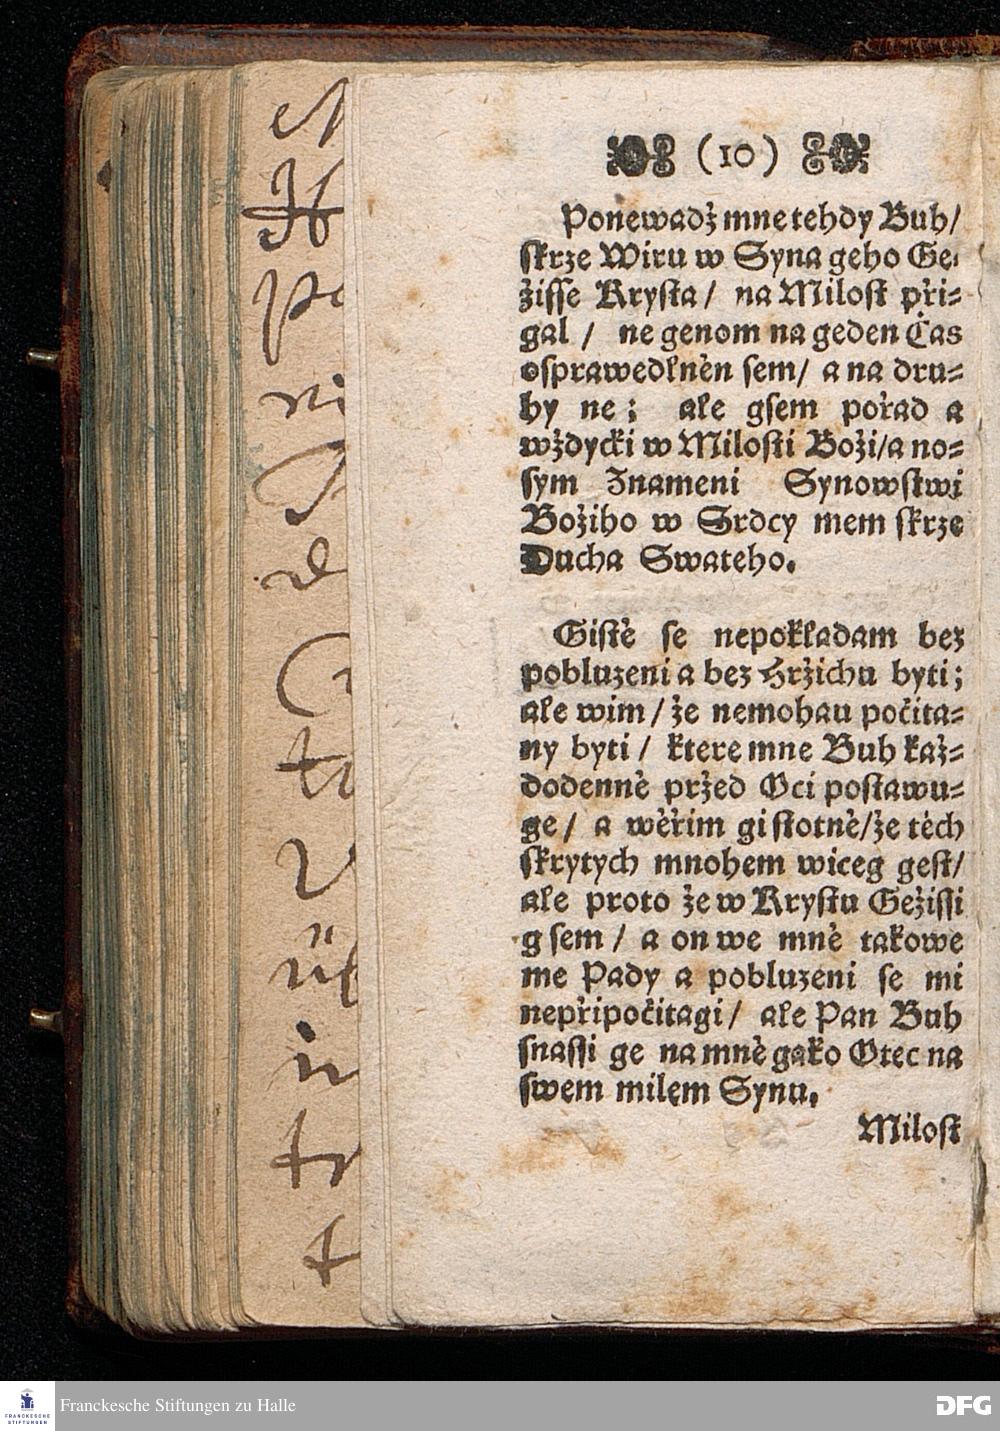 (10)
Ponewadž mne tehdy Buh/
skrze Wiru w Syna geho Ge-
žisse Krysta / na Milost při-
gal / ne genom na geden Čas
osprawedlněn sem/ a na dru-
hy ne; ale gsem pořad a
wždycki w Milosti Boži/a no-
sym Znameni Synowstwi
Božiho w Srdcy mem skrze
Ducha Swateho.
Gistě se nepokladam bez
pobluzeni a bez Hržichu byti;
ale wim / že nemohau počita-
ny byti / ktere mne Buh kaž-
dodenně pržed Oci postawu-
ge / a wěřim gistotně/že těch
skrytych mnohem wiceg gest/
ale proto že w Krystu Gežissi
gsem / a on we mně takowe
me Pady a pobluzeni se mi
nepřipočitagi / ale Pan Buh
snassi ge na mně gako Otec na
swem milem Synu.
Milost
Franckesche Stiftungen zu Halle
FRANCKESCHE
STIFTUNGEN
DFG